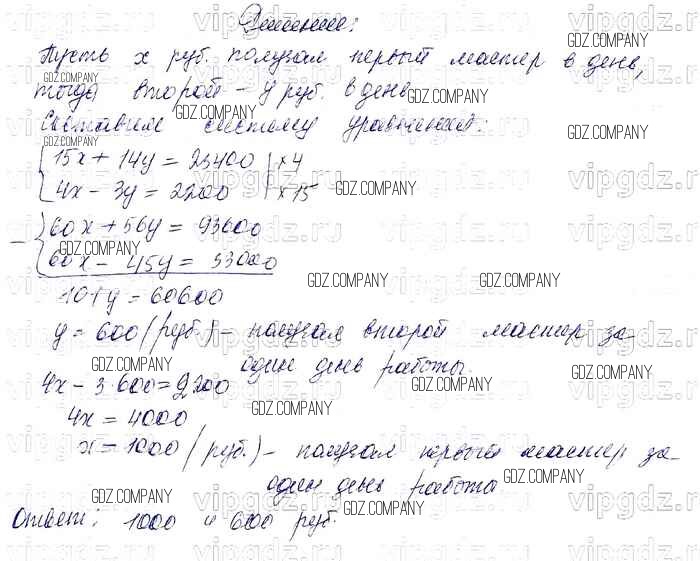 Решение:
Пусть x руб. получал первый мастер в день,
тогда второй – y руб. в день
Составим систему уравнений:
15x + 14y = 23400 | × 4
4x – 3y = 2200 | × 15
– 60x + 56y = 93600
60x – 45y = 33000
101y = 60600
y = 600 (руб.) – получал второй мастер за
один день работы.
4x – 3·600 = 2200
4x = 4000
x = 1000 (руб.) – получал первый мастер за
один день работы
Ответ: 1000 и 600 руб.
GDZ.COMPANY
vipgdz.ru